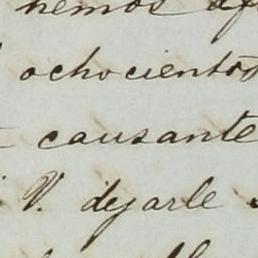 hemos
ochocientos
causante
V. dejarle